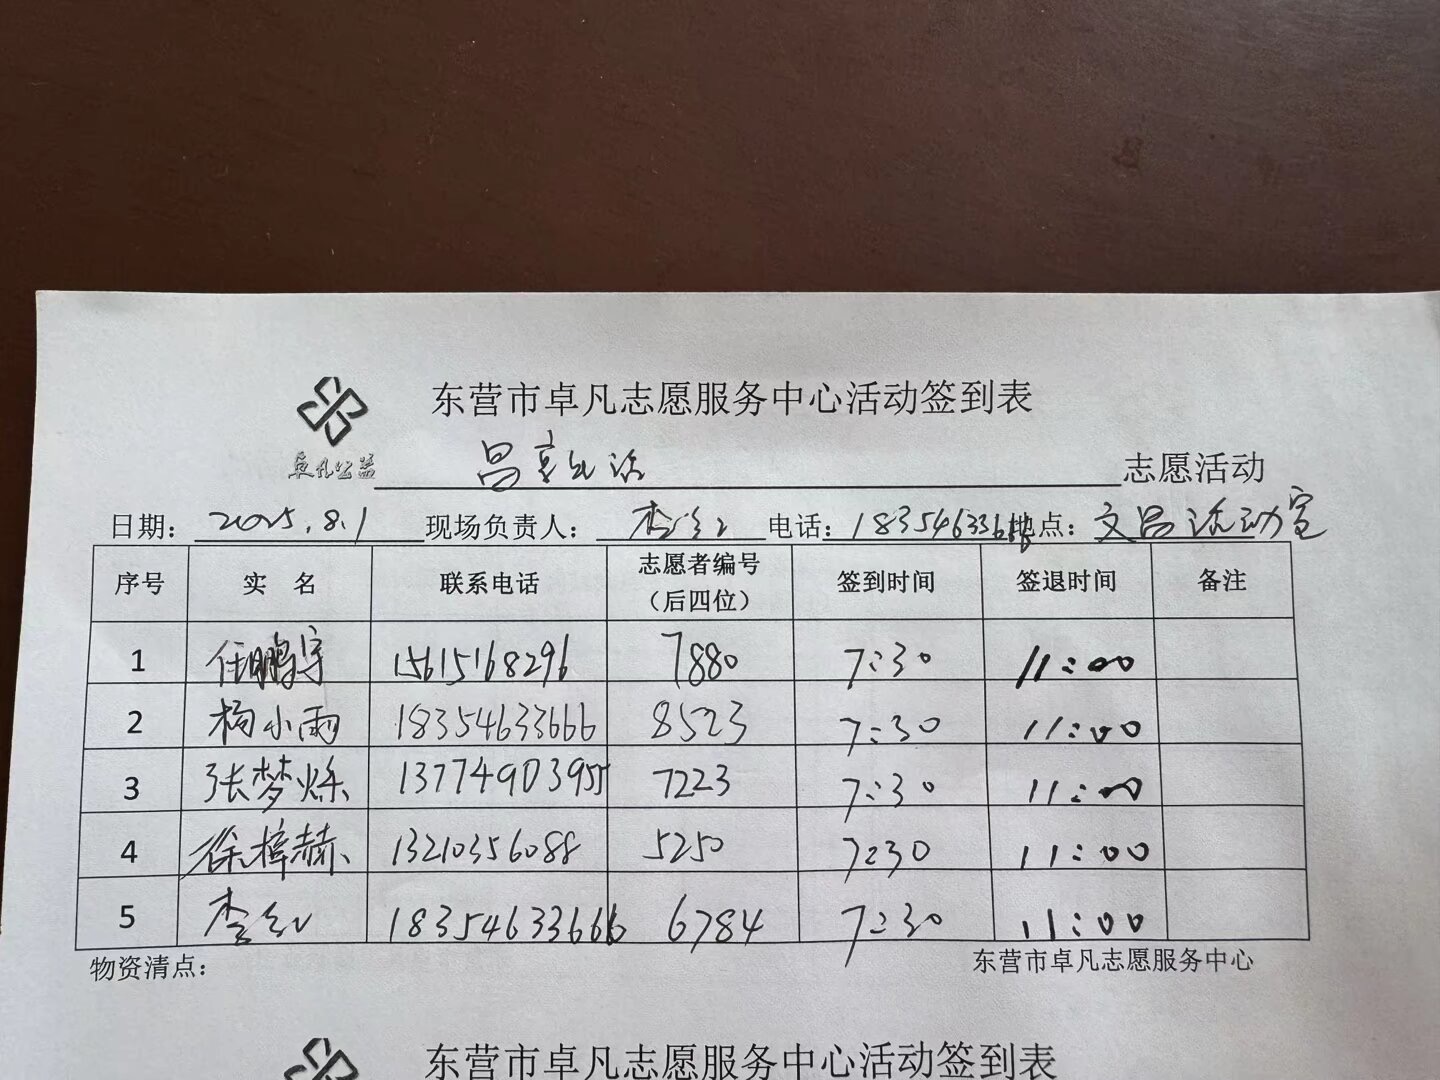 东营市卓凡志愿服务中心活动签到表
卓凡公益
志愿活动
日期： 2025.8.1 现场负责人： 电话：183546336 地点：文昌活动室
序号 实 名 联系电话 志愿者编号（后四位） 签到时间 签退时间 备注
1 任鹏宇 15615168296 7880 7:30 11:00
2 杨小雨 18354633666 8523 7:30 11:00
3 张梦烁 13774903955 7223 7:30 11:00
4 徐梓赫 13210356088 5250 7:30 11:00
5 李红 18354633666 6784 7:30 11:00
物资清点： 东营市卓凡志愿服务中心
东营市卓凡志愿服务中心活动签到表